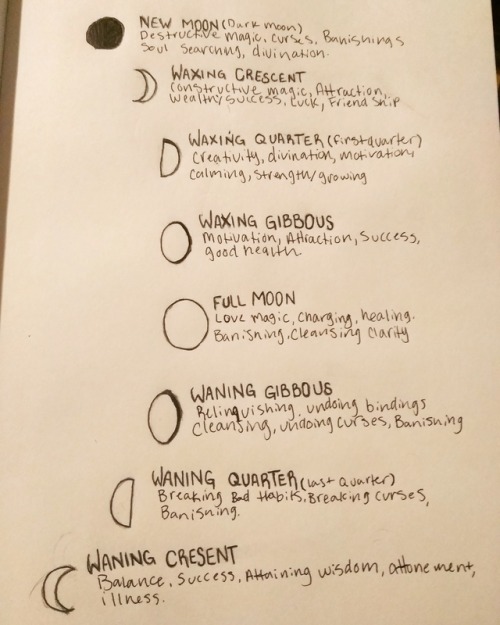 NEW MOON (Dark moon)
Destructive magic, curses, Banishings
Soul searching, divination.
WAXING CRESCENT
Constructive magic, Attraction,
wealth/success, Luck, Friendship
WAXING QUARTER (first quarter)
Creativity, divination, motivation,
Calming, Strength/growing
WAXING GIBBOUS
Motivation, Attraction, Success,
good health.
FULL MOON
Love magic, charging, healing.
Banishing, Cleansing clarity
WANING GIBBOUS
Relinquishing, undoing bindings
Cleansing, undoing curses, Banishing
WANING QUARTER (last quarter)
Breaking Bad Habits, Breaking curses,
Banishing.
WANING CRESENT
Balance, Success, Attaining wisdom, attonement,
illness.